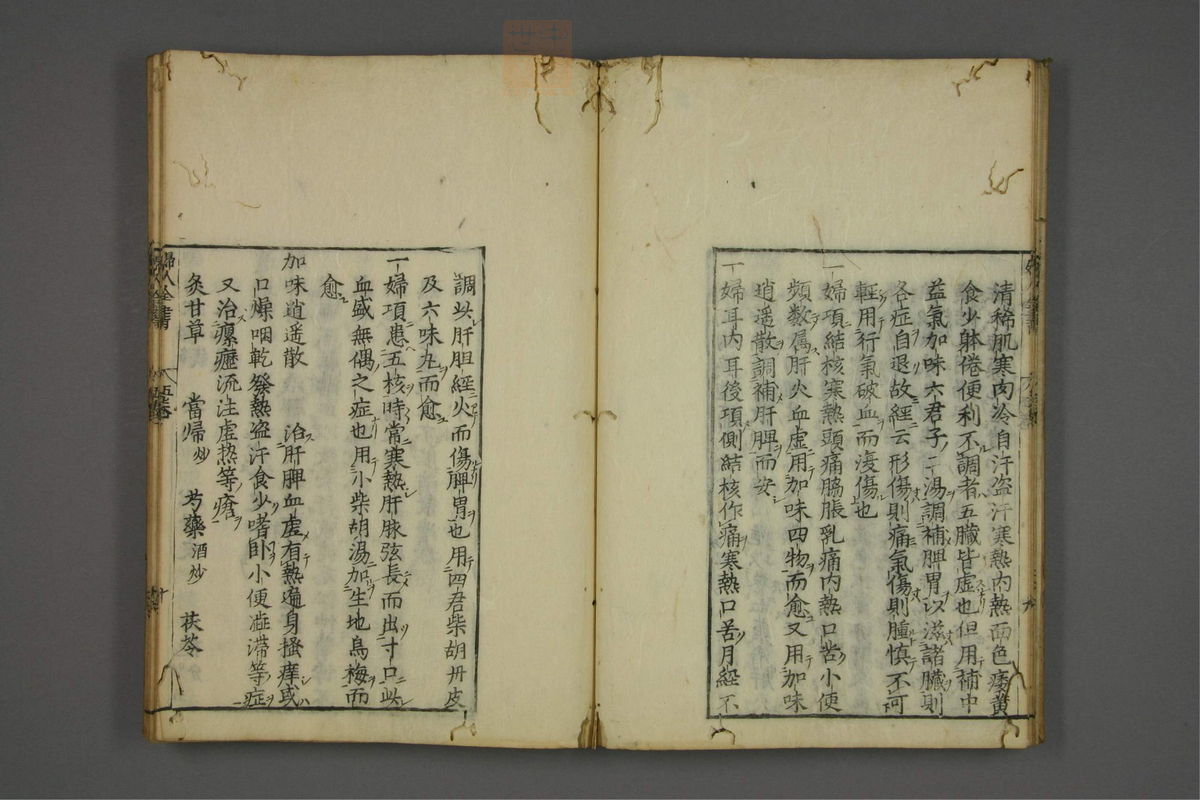 清稀肌寒肉冷自汗盗汗寒熱内熱面色痿黄
食少躰倦便利不調者五臓皆虚也但用補中
益氣加味六君子二湯調補脾胃以滋諸臓則
各症自退故經云形傷則痛氣傷則腫慎不可
輕用行氣破血而復傷也
一婦項結核寒熱頭痛脇脹乳痛内熱口苦小便
頻数属肝火血虚用加味四物而愈又用加味
逍遥散調補肝脾而安
一婦耳内耳後項側結核作痛寒熱口苦月経不
調此肝胆經火而傷脾胃也用四君柴胡丹皮
及六味丸而愈
一婦項患五核時常寒熱肝脉弦長而出寸口此
血盛無偶之症也用小柴胡湯加生地烏梅而
愈
加味逍遥散 治肝脾血虚有熱遍身搔痒或
口燥咽乾發熱盗汗食少嗜卧小便澁滞等症
又治瘰癧流注虚热等瘡
炙甘草 當帰炒 芍藥酒炒 茯苓
婦人全書 五巻 十